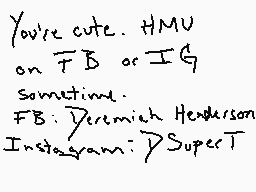 You're cute. HMU
on FB or IG
sometime.
FB: Deremiah Henderson
Instagram: DSuperT